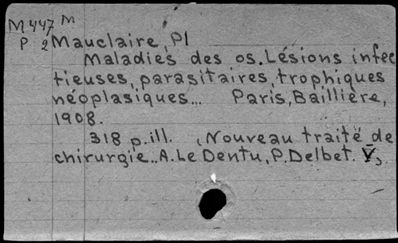 M447 M
P 2 Mauclaire, Pl
Maladies des os. Lésions infec
tieuses, parasitaires, trophiques
néoplasiques... Paris, Baillière,
1908.
318 p. ill. (Nouveau traité de
chirurgie.. A. Le Dentu, P. Delbet. V)